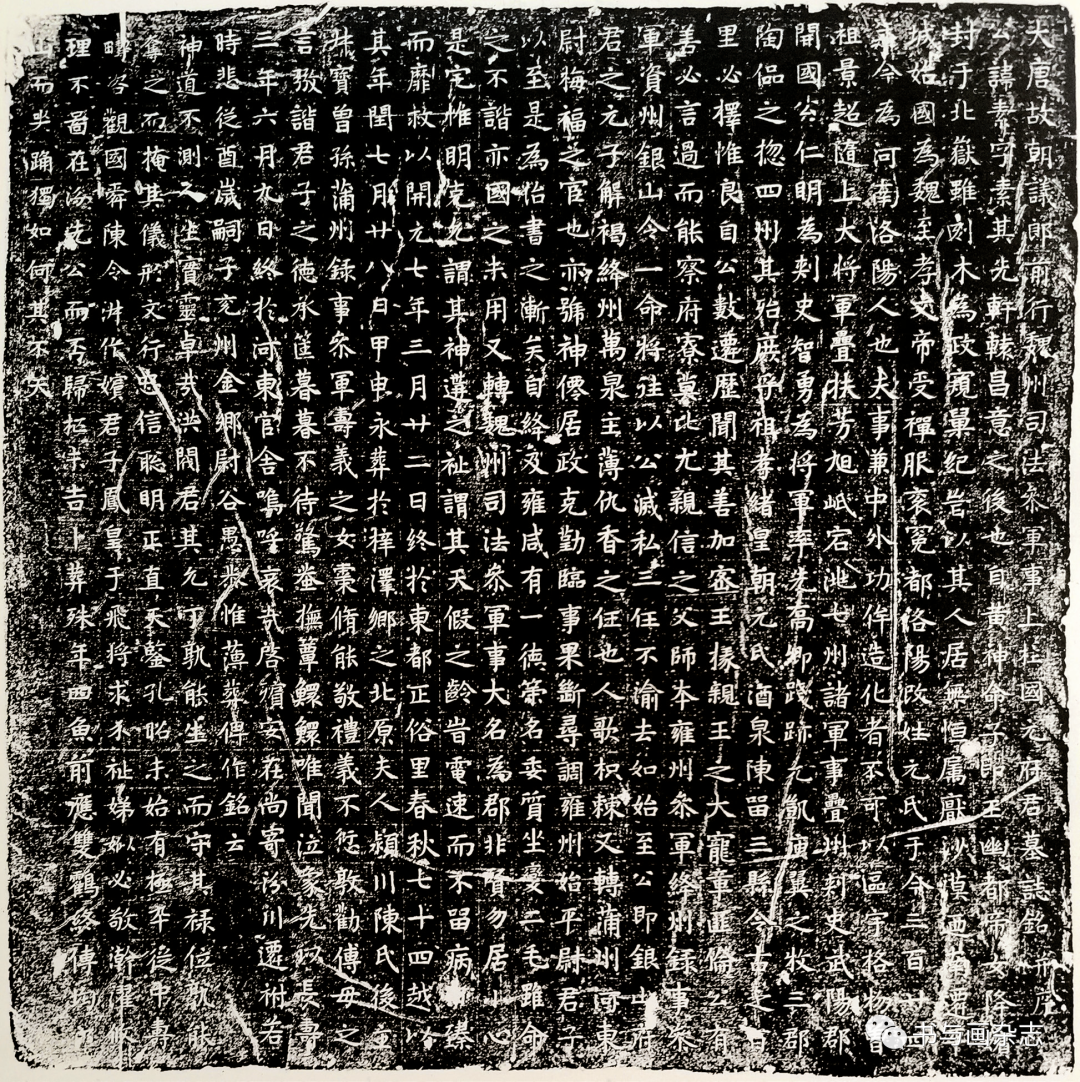 大唐故朝議郎前行魏州司法叅軍事上柱國元府君墓誌銘
公諱素字素其先軒轅昌意之後也自黃神命子即王幽都帝女降
封于北嶽雖刻木為政觀畢紀官以其人居無恒属厭沙漠西南遷
城始國為魏至孝文帝受禪服衮冕都洛陽改姓元氏于今三百廿
今為河南洛陽人也夫事兼中外功侔造化者不可以區宇格物
祖景超隨上大將軍疊扶芳旭岷宕洮七州諸軍事疊州刾史武陽郡
開國公仁明為刾史智勇為將軍率先高卿踐跡元凱演冀之牧三郡
陶侃之惣四州其殆庶乎祖孝緒皇朝元氏酒泉陳留三縣令古之百
里必擇惟良自公數遷歴聞其善加密王掾親王之大寵章匪倫之有
善必言過而能察府寮莫比尤親信之父師本雍州叅軍絳州録事叅
軍資州銀山令一命將往以公滅私三任不渝去如始至公即銀山府
君之元子解褐絳州萬泉主薄仇香之任也人歌枳棘又轉蒲州河東
尉梅福之官也亦號神僊居政克勤臨事果斷尋調雍州始平尉君子
以至是為怡書之漸矣自絳及雍咸有一德策名委質坐晏二毛雖命
之不諧亦國之未用又轉魏州司法叅軍事大名為郡非賢勿居小心
是宅惟明克允謂其神遷之祉謂其天假之齡旹電速而不留病榛
而靡救以開元七年三月廿二日終於東都正俗里春秋七十四越以
其年閏七月廿八日甲申永葬於洋澤鄉之北原夫人潁川陳氏後主
叔寶曾孫蒲州録事叅軍壽義之女棗脩能敬禮義不愆敦勸傅母之
言發諧君子之德承筐暮暮不待鴛鴦撫蕈鰥鰥唯聞泣家先以長壽
二年六月九日終於河東官舍嗚呼哀哉啓殯安在尚寄汾川遷祔若
時悲從酋歲嗣子兖州金鄉尉谷愚恭惟薄葬俾作銘云
神道不測久生寶靈卓哉洪閥君其允丁孰能生之而守其禄位孰能
奪之而掩其儀形文行忠信聰明正直天鑒孔昭未始有極卒從牛專
疇咨觀國爰陳令淑作嬪君子鳳皇于飛將求永祉娣姒必敬澣濯
理不啚在浚先公而否歸松未吉卜葬殊年四魚前應雙鶴終傳
山而步踊獨如何其不矢
书与画杂志